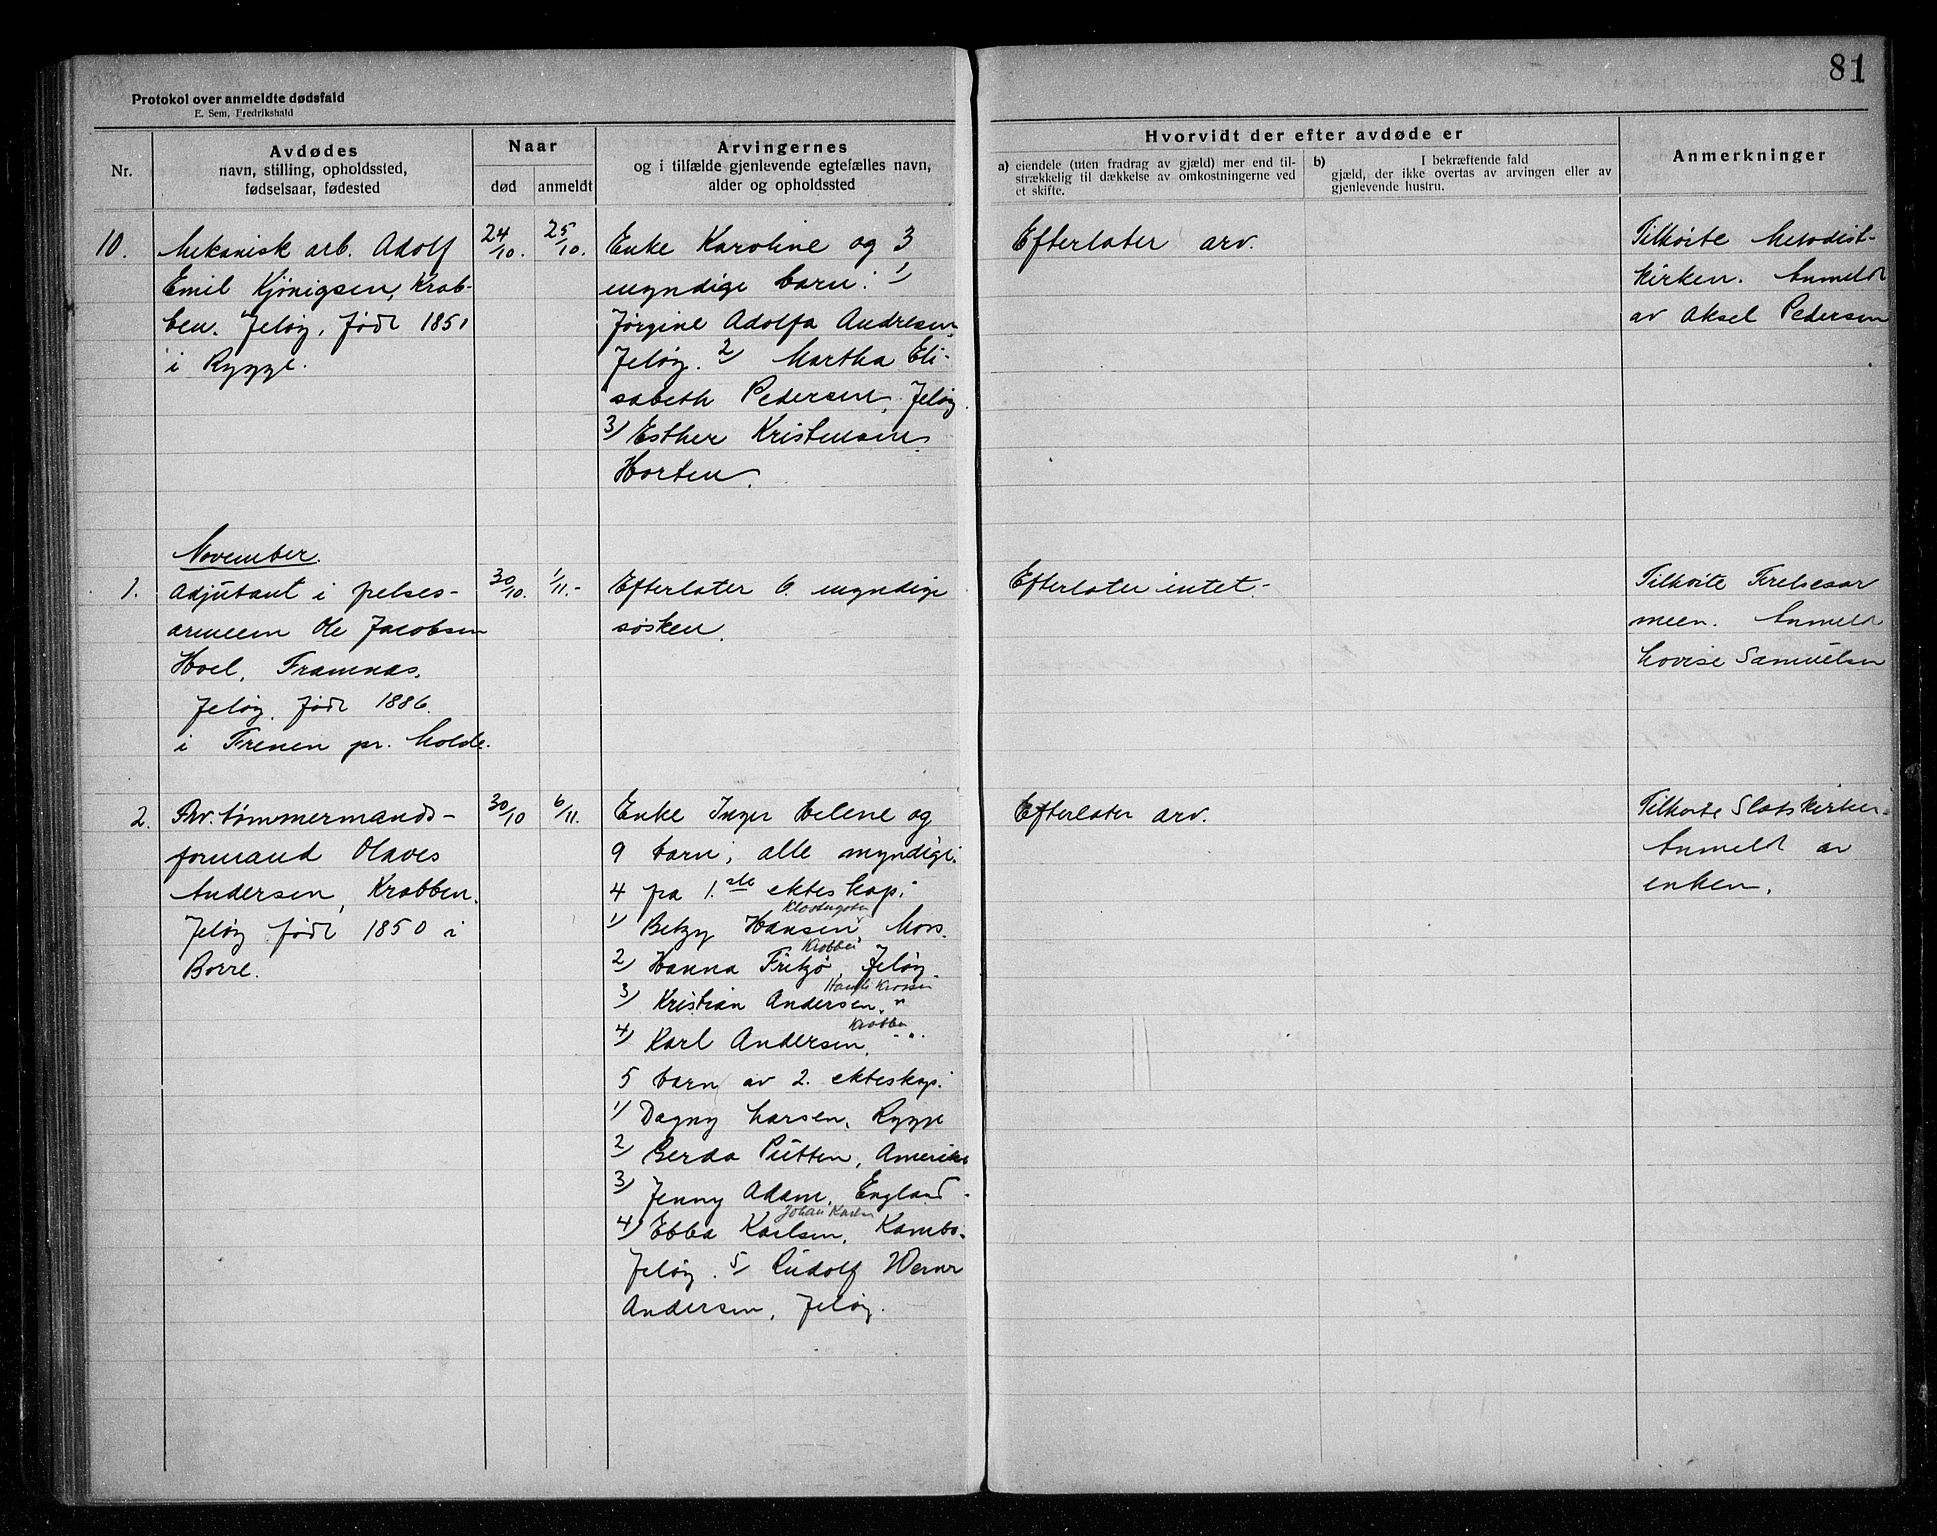 81
Protokol over anmeldte dødsfald
E. Sem, Fredrikshald
Nr.
Avdødes
navn, stilling, opholdssted,
fødselsaar, fødested
Naar
død
anmeldt
Arvingernes
og i tilfælde gjenlevende egtefælles navn,
alder og opholdssted
Hvorvidt der efter avdøde er
a) eiendele (uten fradrag av gjæld) mer end til-
strækkelig til dækkelse av omkostningerne ved
et skifte.
b) I bekræftende fald
gjæld, der ikke overtas av arvingen eller av
gjenlevende hustru.
Anmerkninger
10.
Mekanisk arb. Adolf
Emil Kjønigsen, Krab-
ben. Jeløy, født 1851
i Rygge.
24/10.
25/10.
Enke Karoline og 3
myndige barn: 1)
Jørgine Adolfa Andresen,
Jeløy. 2) Martha Eli-
sabeth Pedersen, Jeløy.
3) Esther Kristensen
Horten.
Efterlater arv.
Tilhørte Metodist-
kirken. Anmeldt
av Aksel Pedersen
November.
1.
Adjutant i frelses-
armeen Ole Jacobsen
Hoel, Framnæs,
Jeløy, født 1886.
i Frenen pr. Molde.
30/10.
1/11.-
Efterlater 6 myndige
søsken.
Efterlater intet.-
Tilhørte Frelsesar
meen. Anmeldt
Lovise Samuelsen
2.
Fhv. tømmermands-
formand Olaves
Andersen, Krabben.
Jeløy født 1850 i
Borre.
30/10
6/11.
Enke Inger Helene og
9 barn, alle myndige.
4 fra 1.ste ekteskap:
Klostergaten
1) Betzy Hansen, Moss.
Krabben
2) Hanna Fritzø, Jeløy.
3) Kristian Andersen, "
Krabben
4) Karl Andersen, - " -
5 barn av 2. ekteskap:
1) Dagny Larsen, Rygge
2) Gerda Pütten, Amerika
3) Jenny Adam, England.
Johan Karlsen
4) Ebba Karlsen, Kambo.
Jeløy. 5) Rudolf Werner
Andersen, Jeløy.
Efterlater arv.
Tilhørte Statskirken.
Anmeldt av
enken.